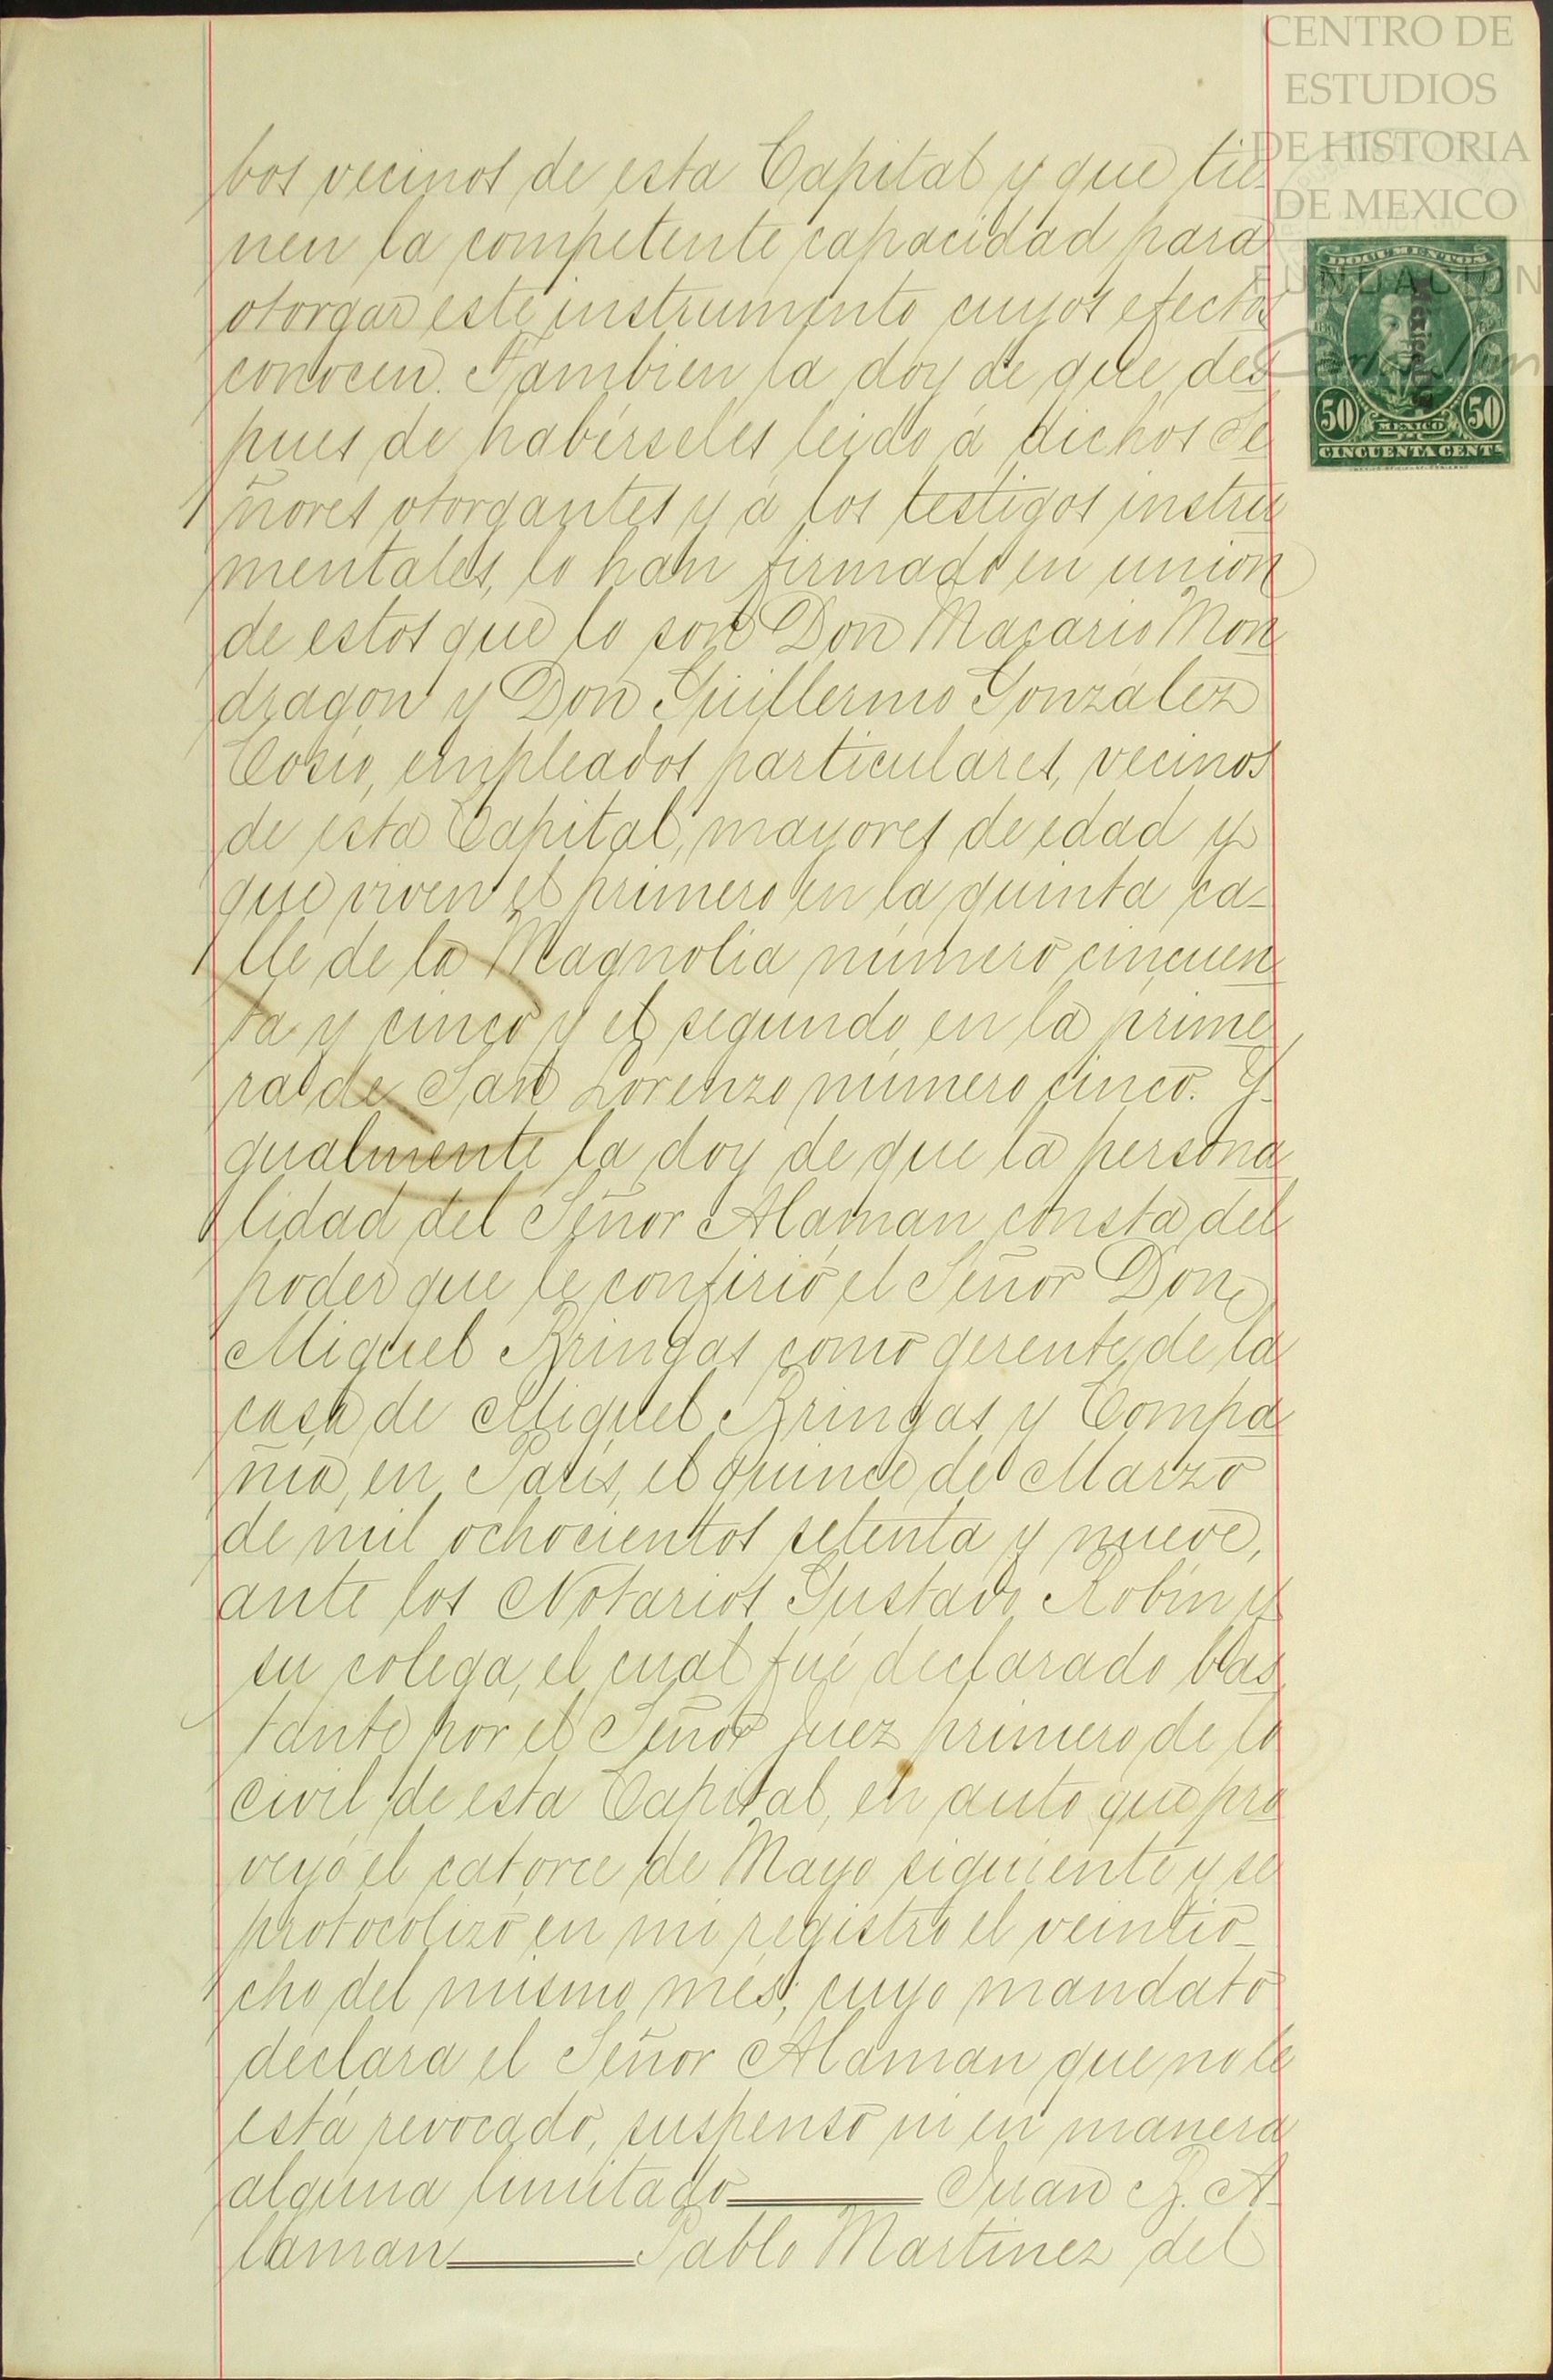 CENTRO DE
ESTUDIOS
DE HISTORIA
DE MEXICO
FUNDACIÓN
DOCUMENTOS
50 MEXICO 50
CINCUENTA CENTS
bos vecinos de esta Capital y que tie-
nen la competente capacidad para
otorgar este instrumento cuyos efectos
conocen. Tambien la doy de que des
pues de habérseles leido á dichos Se
ñores otorgantes y á los testigos instru
mentales, lo han firmado en union
de estos que lo son Don Macario Mon
dragon y Don Guillermo Gonzalez
Cosio, empleados particulares, vecinos
de esta Capital, mayores de edad y
que viven el primero en la quinta ca-
lle de la Magnolia número cincuen
ta y cinco y el segundo en la prime
ra de San Lorenzo número cinco. I-
gualmente la doy de que la persona
lidad del Señor Alaman consta del
poder que le confirió el Señor Don
Miguel Bringas como gerente de la
casa de Miguel Bringas y Compa
ñia, en Paris, el quince de Marzo
de mil ochocientos setenta y nueve,
ante los Notarios Gustavo Robin y
su colega, el cual fué declarado bas
tante por el Señor Juez primero de lo
civil de esta Capital, en auto que pro
veyó el catorce de Mayo siguiente y se
protocolizó en mi registro el veintio-
cho del mismo mes; cuyo mandato
declara el Señor Alaman que no le
está revocado, suspenso ni en manera
alguna limitado Juan B. A-
laman Pablo Martinez del